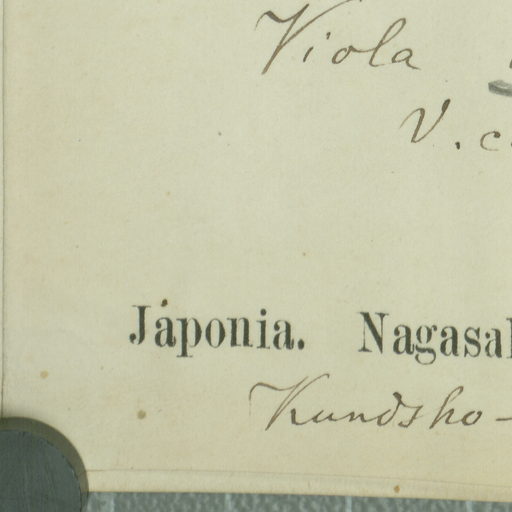 Viola
V. c
Japonia. Nagasa
Kundsho-